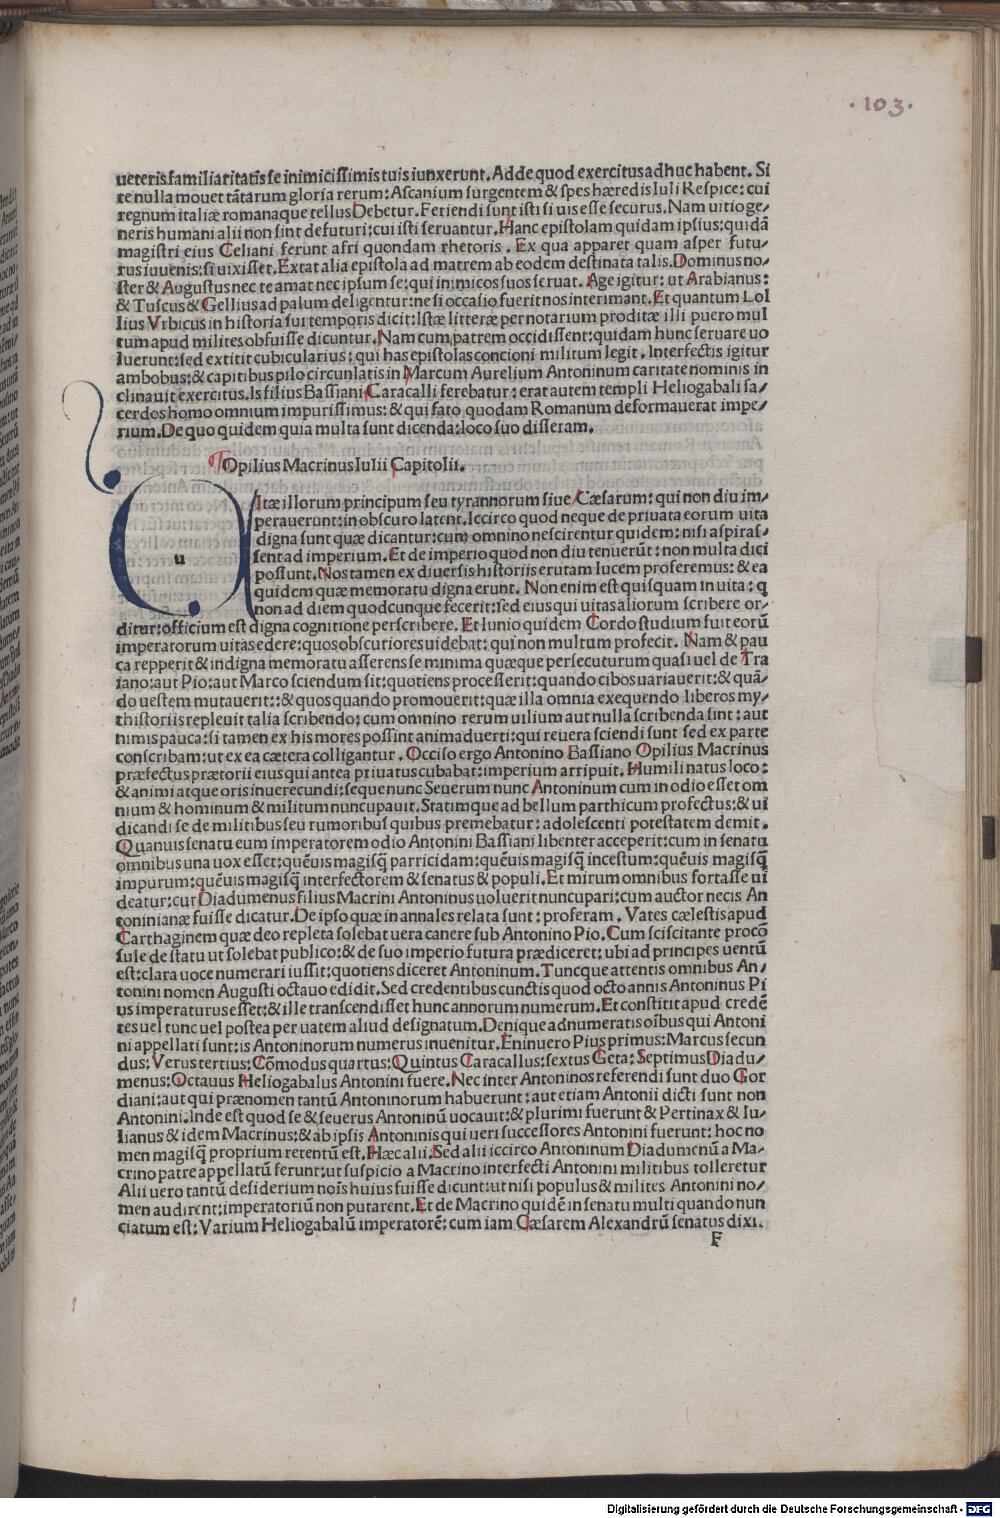 · 103 ·
ueteris familiaritatis se inimicissimis tuis iunxerunt. Adde quod exercitus adhuc habent. Si
te nulla mouet tãtarum gloria rerum: Ascanium surgentem & spes hæredis Iuli Respice: cui
regnum italiæ romanaque tellus Debetur. Feriendi sunt isti si uis esse securus. Nam uitio ge/
neris humani alii non sint defuturi: cui isti seruantur. Hanc epistolam quidam ipsius: quidã
magistri eius Celiani ferunt afri quondam rhetoris. Ex qua apparet quam asper futu/
rus iuuenis: si uixisset. Extat alia epistola ad matrem ab eodem destinata talis. Dominus no/
ster & Augustus nec te amat nec ipsum se: qui inimicos suos seruat. Age igitur: ut Arabianus:
& Tuscus & Gellius ad palum deligentur: ne si occasio fuerit nos interimant. Et quantum Lol
lius Vrbicus in historia sui temporis dicit: Istæ litteræ per notarium proditæ illi puero mul
tum apud milites obfuisse dicuntur. Nam cum patrem occidissent: quidam hunc seruare uo
luerunt: sed extitit cubicularius: qui has epistolas concioni militum legit. Interfectis igitur
ambobus: & capitibus pilo circunlatis in Marcum Aurelium Antoninum caritate nominis in
clinauit exercitus. Is filius Bassiani Caracalli ferebatur: erat autem templi Heliogabali sa/
cerdos homo omnium impurissimus: & qui fato quodam Romanum deformauerat impe/
rium. De quo quidem quia multa sunt dicenda: loco suo disseram.
Opilius Macrinus Iulii Capitolii.
u
Itæ illorum principum seu tyrannorum siue Cæsarum: qui non diu im/
perauerunt: in obscuro latent. Iccirco quod neque de priuata eorum uita
digna sunt quæ dicantur: cum omnino nescirentur quidem: nisi aspiras/
sent ad imperium. Et de imperio quod non diu tenuerũt: non multa dici
possunt. Nos tamen ex diuersis historiis eruta in lucem proferemus: & ea
quidem quæ memoratu digna erunt. Non enim est quisquam in uita: q
non ad diem quodcunque fecerit: sed eius qui uitas aliorum scribere or/
ditur: officium est digna cognitione perscribere. Et Iunio quidem Cordo studium fuit eorũ
imperatorum uitas edere: quos obscuriores uidebat: qui non multum profecit. Nam & pau
ca repperit & indigna memoratu asserens se minima quæque persecuturum quasi uel de Tra
iano: aut Pio: aut Marco sciendum sit: quotiens processerit: quando cibos uariauerit: & quã/
do uestem mutauerit:: & quos quando promouerit: quæ illa omnia exequendo liberos my/
thistoriis repleuit talia scribendo: cum omnino rerum uilium aut nulla scribenda sint: aut
nimis pauca: si tamen ex his mores possint animaduerti: qui reuera sciendi sunt sed ex parte
conscribam: ut ex ea cætera colligantur. Occiso ergo Antonino Bassiano Opilius Macrinus
præfectus prætorii eius qui antea priuatus cubabat: imperium arripuit. Humili natus loco:
& animi atque oris inuerecundi: seque nunc Seuerum nunc Antoninum cum in odio esset om
nium & hominum & militum nuncupauit. Statimque ad bellum parthicum profectus: & ui
dicandi se de militibus seu rumoribus quibus premebatur: adolescenti potestatem demit.
Quanuis senatu eum imperatorem odio Antonini Bassiani libenter acceperit: cum in senatu
omnibus una uox esset: quẽuis magisq̃ parricidam: quẽuis magisq̃ incestum: quẽuis magisq̃
impurum: quẽuis magisq̃ interfectorem & senatus & populi. Et mirum omnibus fortasse ui
deatur: cur Diadumenus filius Macrini Antoninus uoluerit nuncupari: cum auctor necis An
toninianæ fuisse dicatur. De ipso quæ in annales relata sunt: proferam. Vates cælestis apud
Carthaginem quæ deo repleta solebat uera canere sub Antonino Pio. Cum sciscitante procõ
sule de statu ut solebat publico: & de suo imperio futura prædiceret: ubi ad principes uentũ
est: clara uoce numerari iussit: quotiens diceret Antoninum. Tuncque attentis omnibus An/
tonini nomen Augusti octauo edidit. Sed credentibus cunctis quod octo annis Antoninus Pi
us imperaturus esset: & ille transcendisset hunc annorum numerum. Et constitit apud credẽ
tes uel tunc uel postea per uatem aliud designatum. Denique adnumeratis oĩbus qui Antoni
ni appellati sunt: is Antoninorum numerus inuenitur. Eninuero Pius primus: Marcus secun
dus: Verus tertius: Cõmodus quartus: Quintus Caracallus: sextus Geta: Septimus Diadu/
menus: Octauus Heliogabalus Antonini fuere. Nec inter Antoninos referendi sunt duo Gor
diani: aut qui prænomen tantũ Antoninorum habuerunt: aut etiam Antonii dicti sunt non
Antonini. Inde est quod se & seuerus Antoninũ uocauit: & plurimi fuerunt & Pertinax & Iu/
lianus & idem Macrinus: & ab ipsis Antoninis qui ueri successores Antonini fuerunt: hoc no
men magisq̃ proprium retentũ est. Hæc alii. Sed alii iccirco Antoninum Diadumenũ a Ma/
crino patre appellatũ ferunt: ut suspicio a Macrino interfecti Antonini militibus tolleretur
Alii uero tantũ desiderium noĩs huius fuisse dicunt: ut nisi populus & milites Antonini no/
men audirent: imperatoriũ non putarent. Et de Macrino quidẽ in senatu multi quando nun
ciatum est: Varium Heliogabalũ imperatorẽ: cum iam Cæsarem Alexandrũ senatus dixi.
F
Digitalisierung gefördert durch die Deutsche Forschungsgemeinschaft - DFG